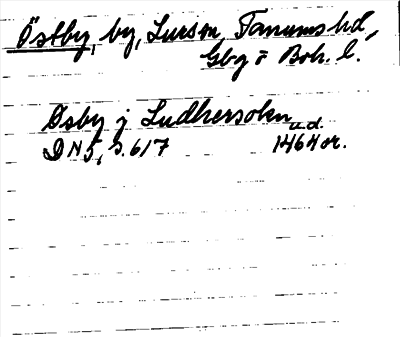 Östby, by, Lurs sn, Tanums hd,
Gbg o Boh. l.
Øsby j Ludhersokn u.d.
DN5, s. 617 1464 or.